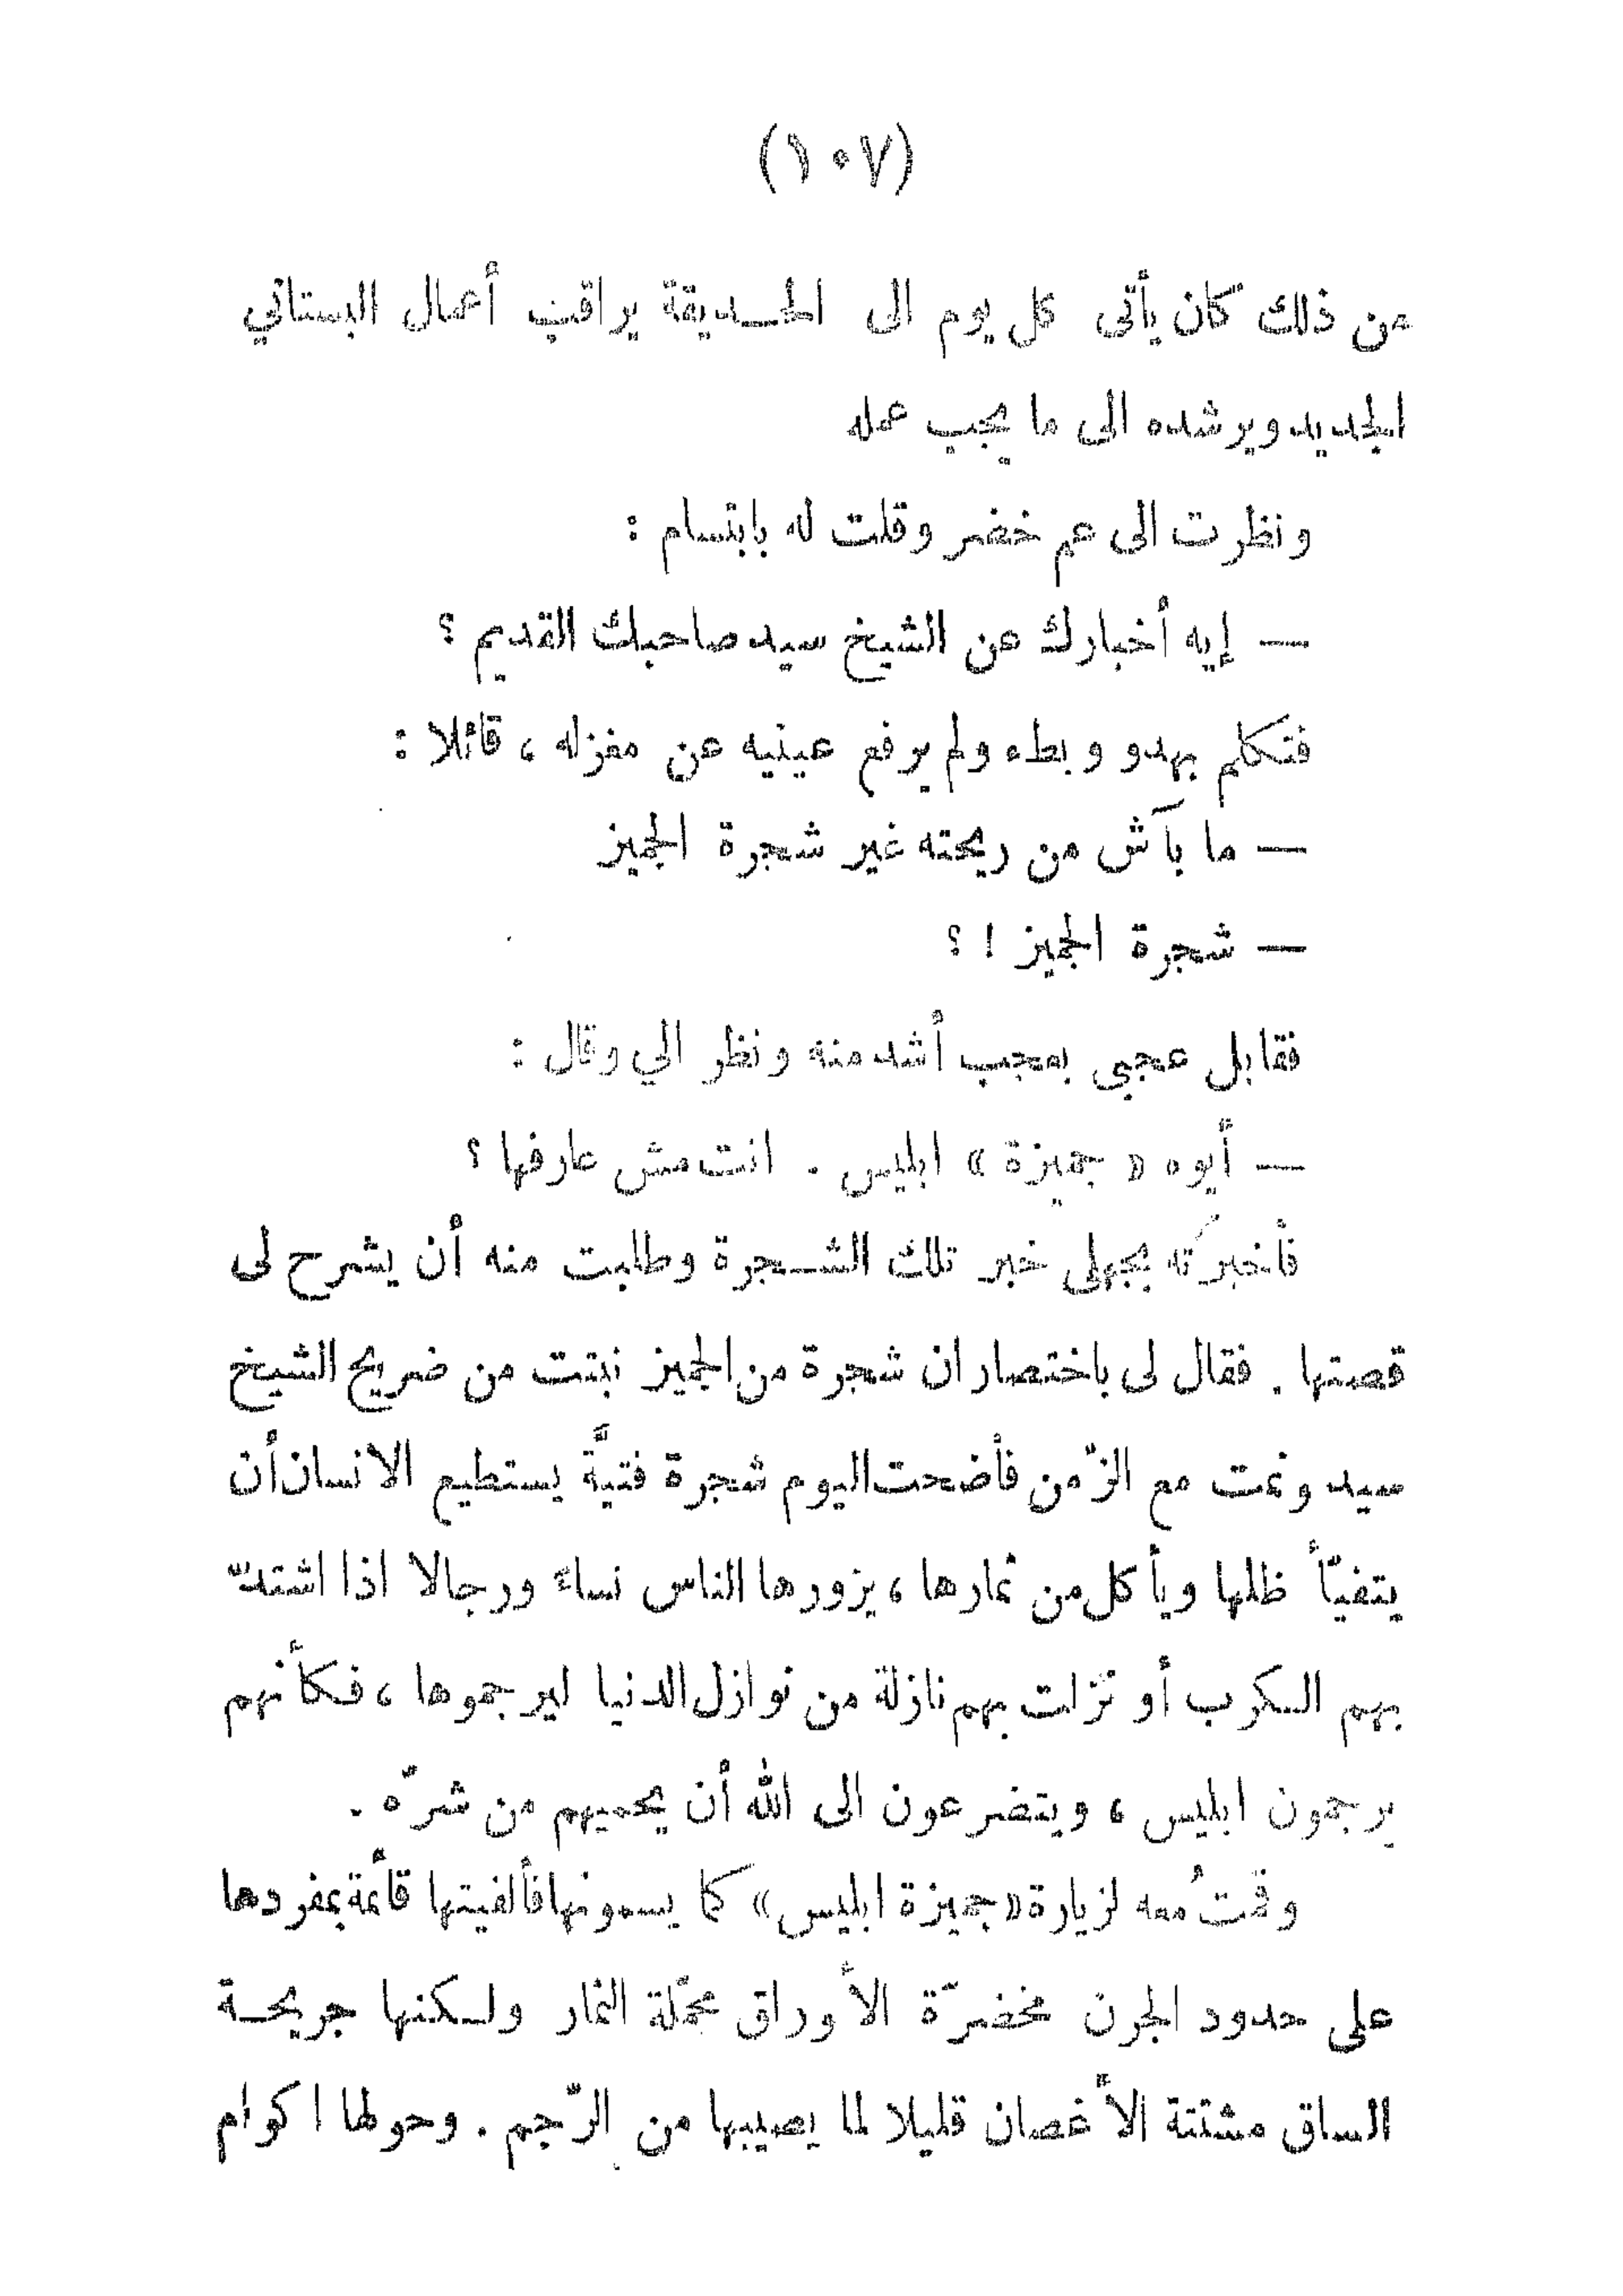 (١٠٧)
من ذلك كان يأتى كل يوم الى الحديقة يراقب أعمال البستاني
الجديد ويرشده الى ما يجب عمله
ونظرت الى عم خضر وقلت له بابتسام :
— إيه أخبارك عن الشيخ سيد صاحبك القديم ؟
فتكلم بهدو وبطء ولم يرفع عينيه عن مغزله ، قائلا :
— ما بآش من ريحته غير شجرة الجميز
— شجرة الجميز ! ؟
فقابل عجبى بعجب أشد منه ونظر الي وقال :
— أيوه « جميزة » ابليس . انت مش عارفها ؟
فأخبرته بجهلى خبر تلك الشجرة وطلبت منه أن يشرح لى
قصتها . فقال لى باختصار ان شجرة من الجميز نبتت من ضريح الشيخ
سيد ونمت مع الزّمن فأضحت اليوم شجرة فتيَّة يستطيع الانسان أن
يتفيّأ ظلها ويأكل من ثمارها ، يزورها الناس نساء ورجالا اذا اشتدّ
بهم الكرب أو نزلت بهم نازلة من نوازل الدنيا ليرجموها ، فكأنهم
يرجمون ابليس ، ويتضرعون الى الله أن يحميهم من شرّه .
وقمتُ معه لزيارة «جميزة ابليس» كما يسمونها فألفيتها قائمة بمفردها
على حدود الجرن مخضرّة الأوراق محمّلة الثمار ولكنها جريحة
الساق مشتتة الأغصان قليلا لما يصيبها من الرّجم . وحولها اكوام